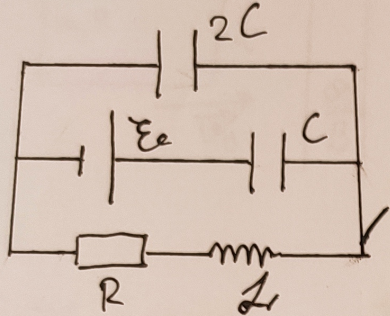 2C
ℰ₀ C
R L